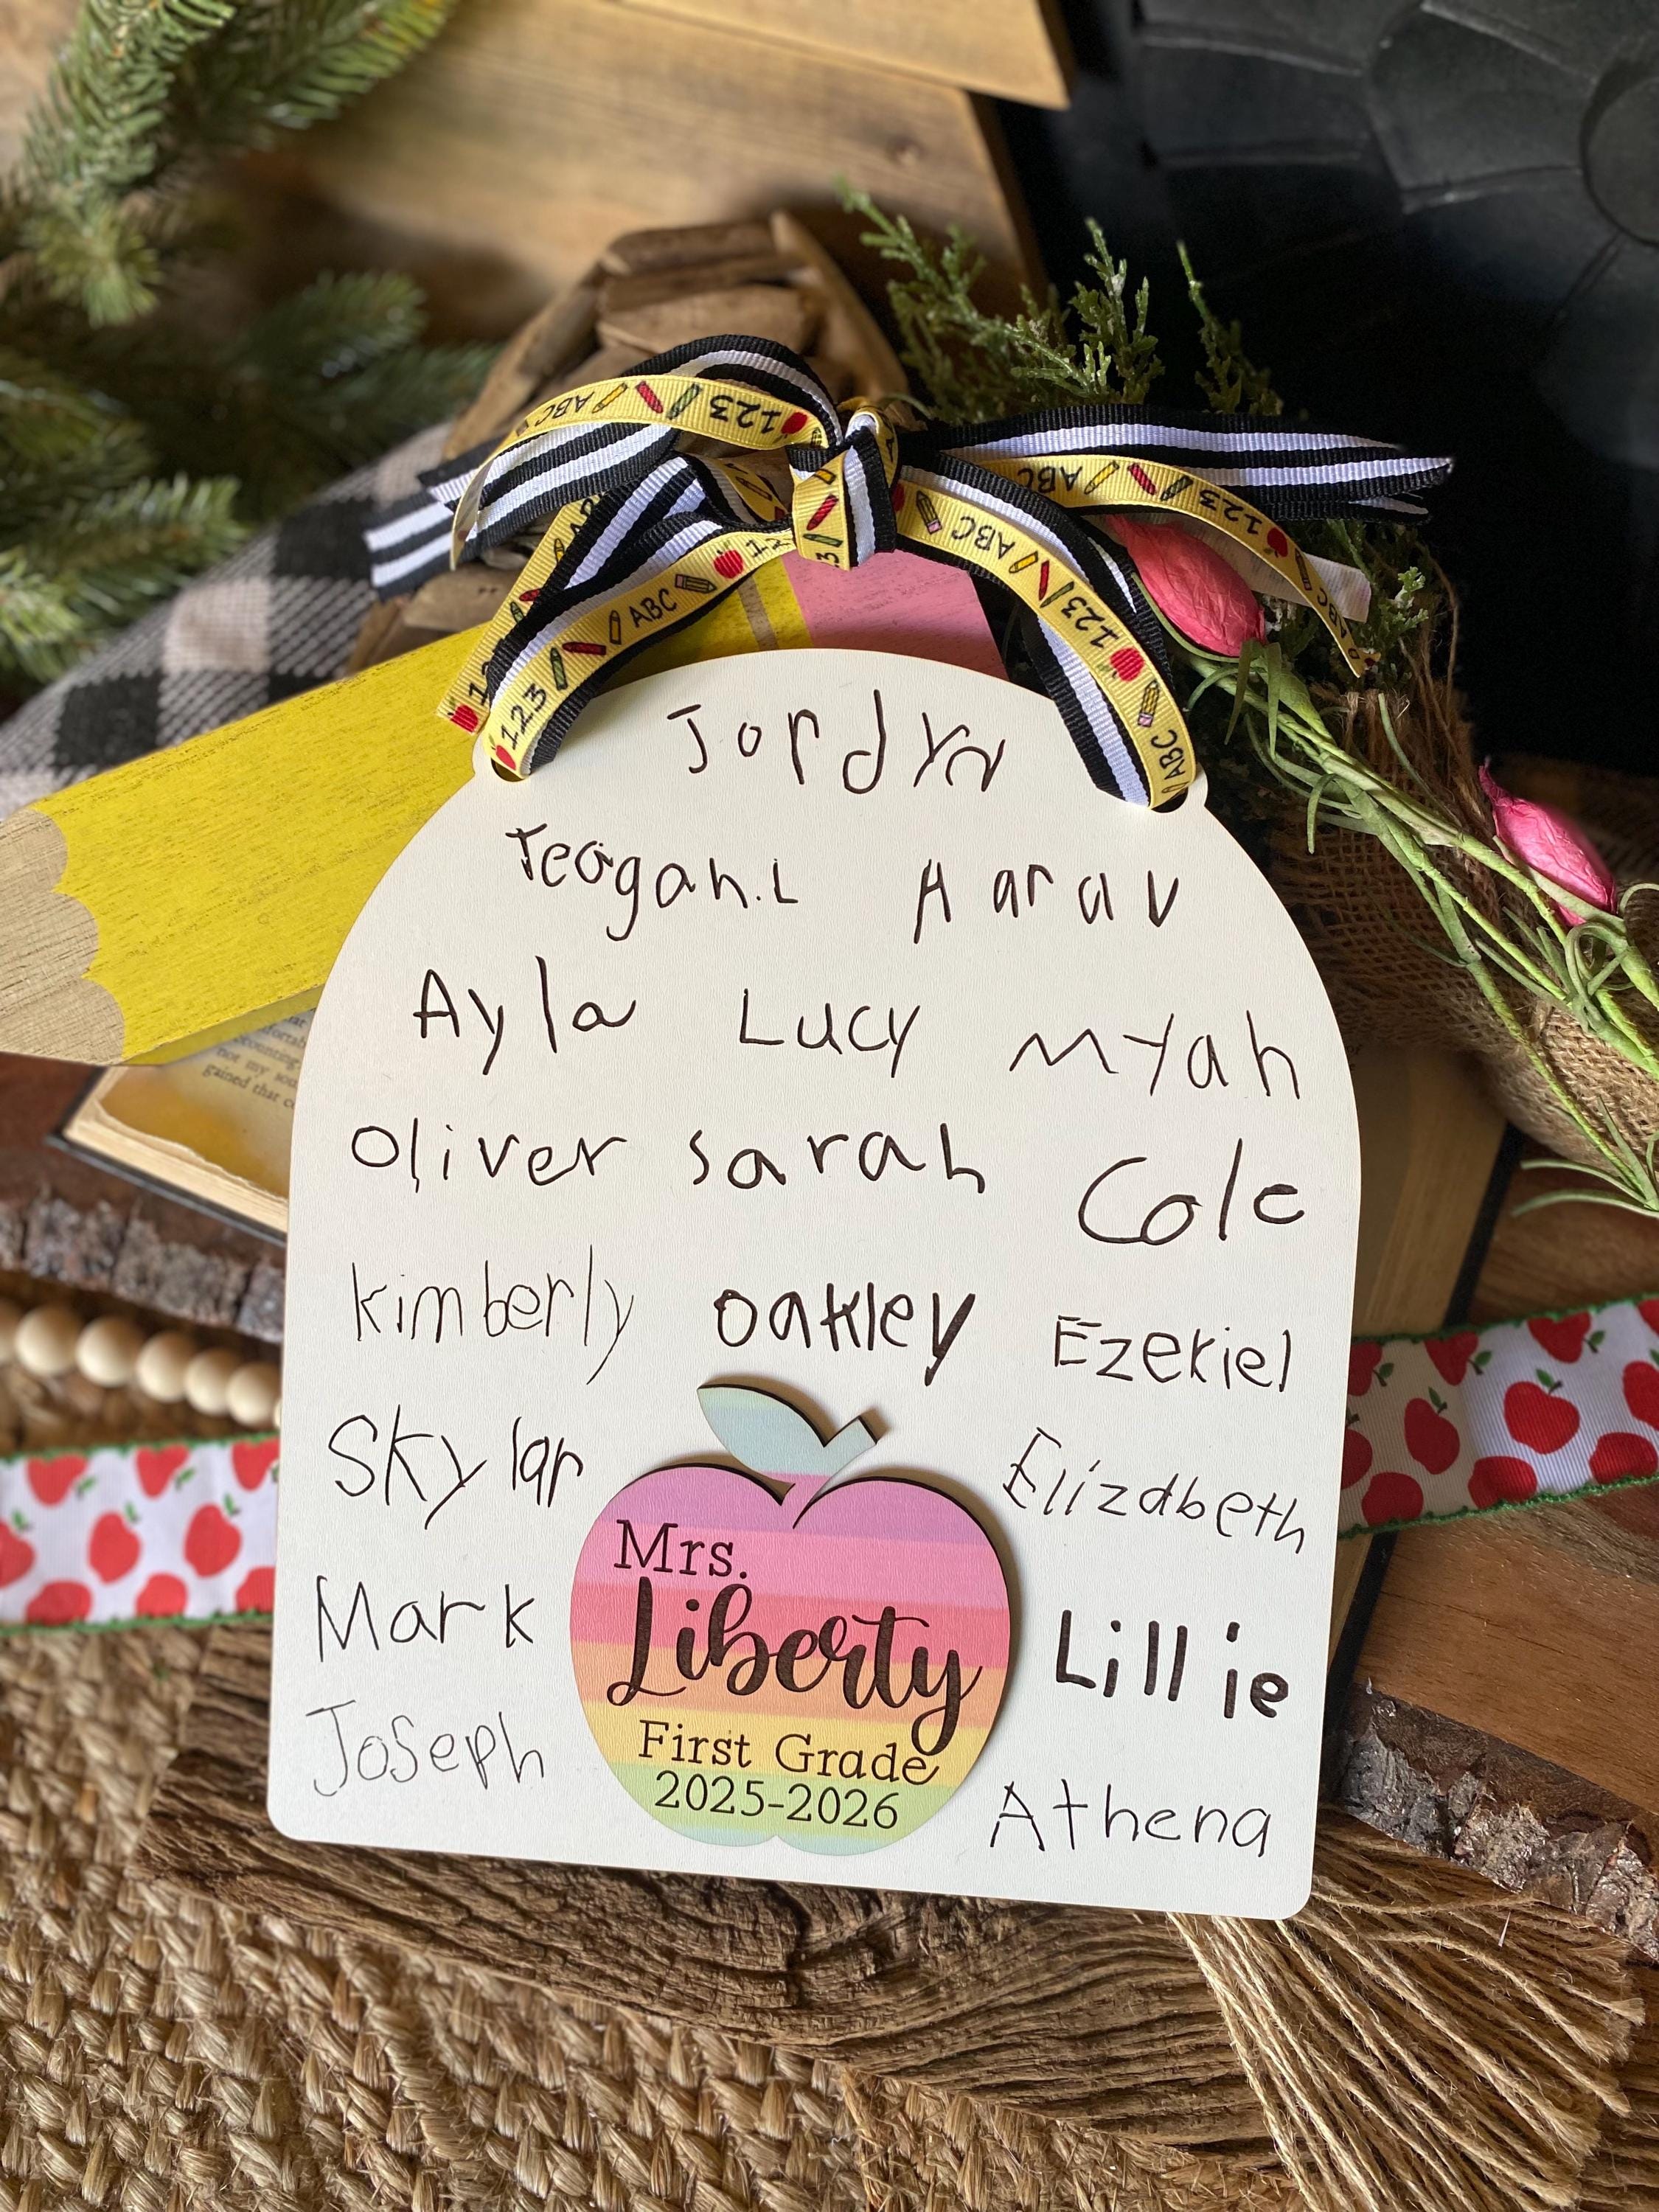 ABC 123
ABC 123
123 ABC 123
ABC 123 ABC
Jordyn
Teagan.L Aarav
Ayla Lucy Myah
Oliver Sarah Cole
Kimberly Oakley Ezekiel
Skylar Elizabeth
Mark Lillie
Joseph Athena
Mrs.
Liberty
First Grade
2025-2026
not my
gained that